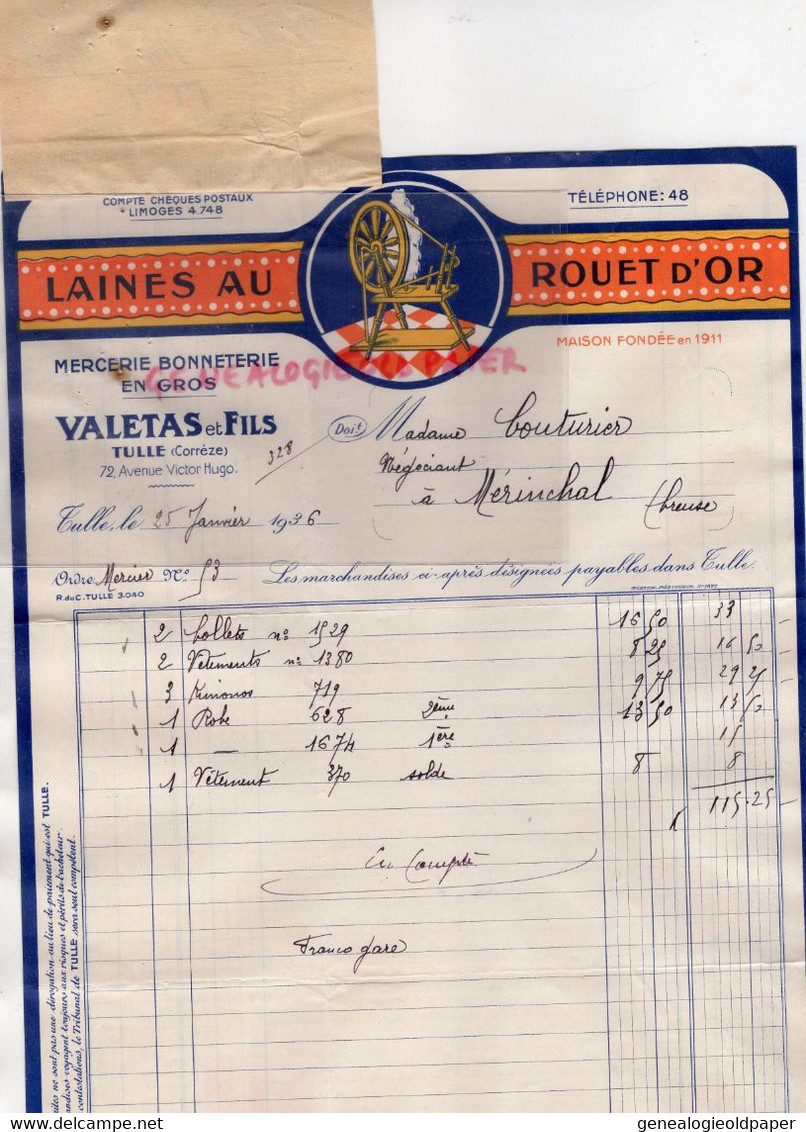 COMPTE CHÈQUES POSTAUX
LIMOGES 4.748
TÉLÉPHONE: 48
LAINES AU ROUET D'OR
MAISON FONDÉE en 1911
MERCERIE BONNETERIE
EN GROS
GENEALOGIE OLD PAPER
VALETAS et FILS
TULLE (Corrèze)
72, Avenue Victor Hugo.
328
Doit Madame Couturier
Négociant
à Mérinchal
(Creuse)
Tulle, le 25 Janvier 1936
Ordre Mercier No 53 Les marchandises ci-après désignées payables dans Tulle.
R. du C. TULLE 3.040
2 Collets no 1529 16 50 33
2 Vêtements no 1380 8 25 16 50
3 Kimonos 719 9 75 29 25
1 Robe 628 2ème 13 50 13 50
1 — 1674 1ère 15
1 Vêtement 370 solde 8 8
115.25
En Compte
Franco gare
ites ne sont pas une dérogation au lieu de paiement qui est TULLE.
andises voyagent toujours aux risques et périls de l'acheteur.
contestations, le Tribunal de TULLE sera seul compétent.
genealogieoldpaper